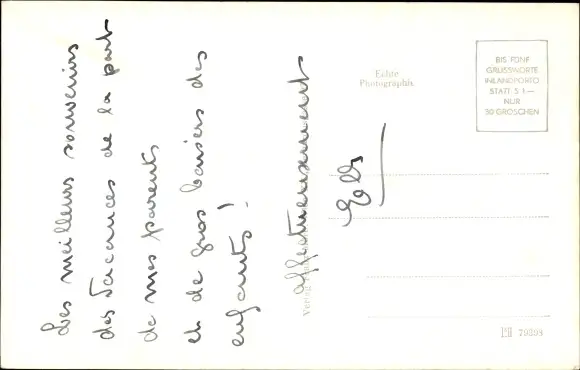 Les meilleurs souvenirs
des Vacances de la part
de mes parents
et de gros baisers des
enfants !
affectueusement
Echte
Photographie
BIS FÜNF
GRUSSWORTE
INLANDPORTO
STATT S 1.—
NUR
30 GROSCHEN
Verlag
79398